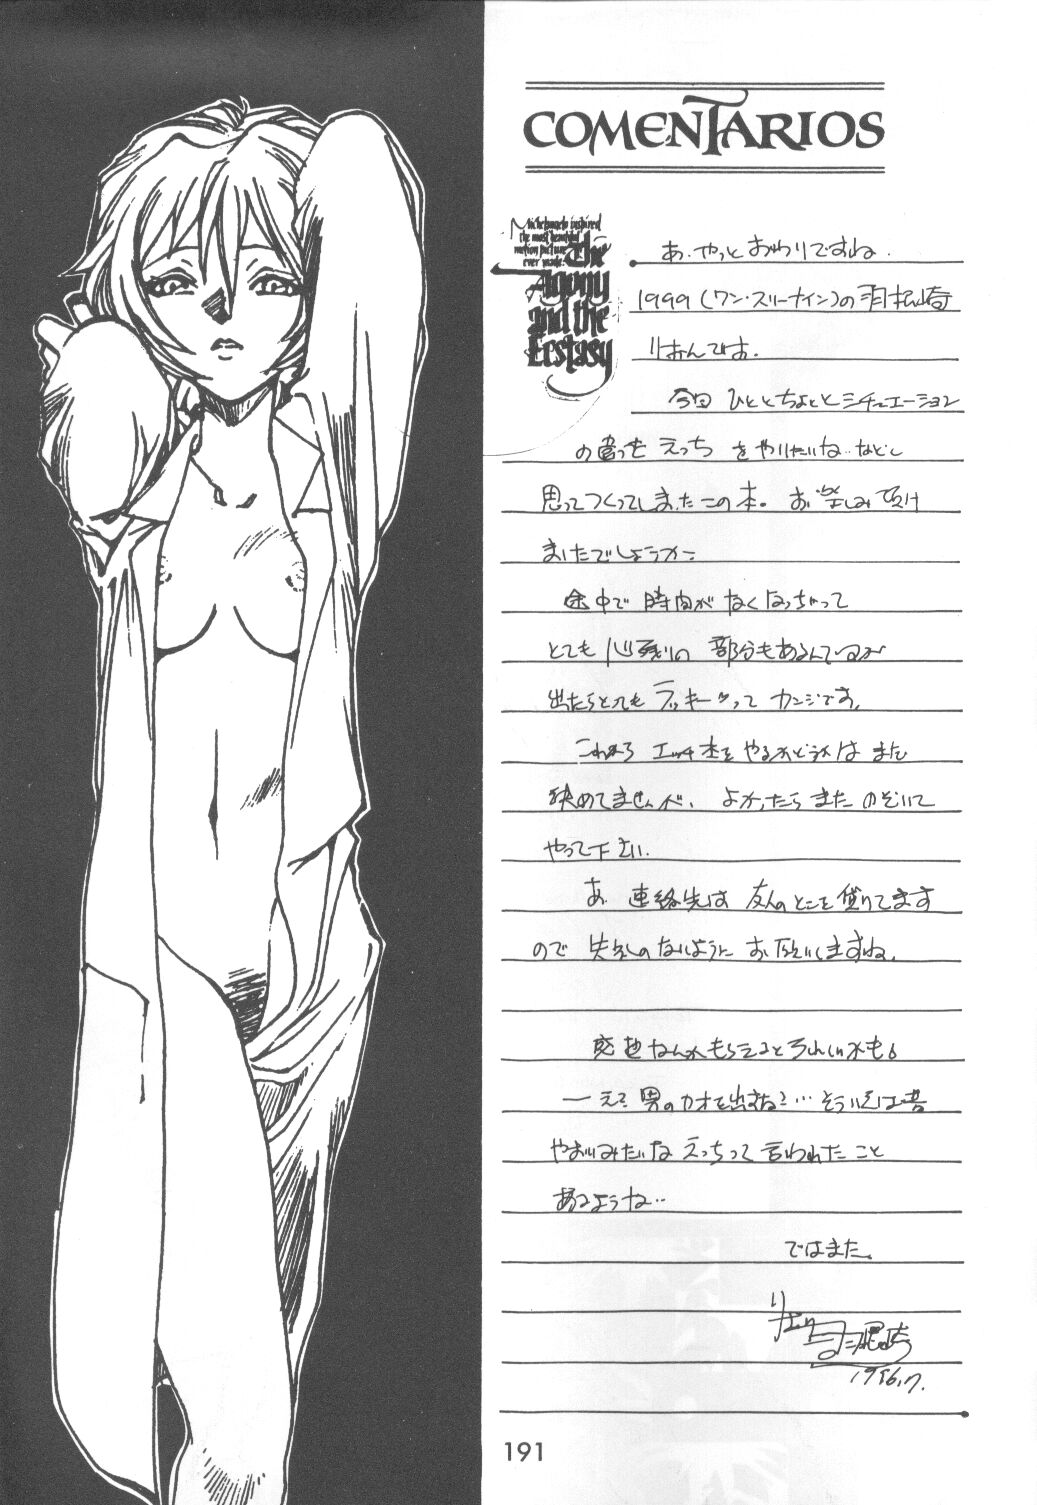 COMENTARIOS
Michelangelo inspired
the most beautiful
motion picture
ever made.
The
Agony
and the
Ecstasy
あ、やっとおわりですね.
1999(ワン・スリーナイン)の
りおんです.
今回 ひとと ちょっと シチュエーション
の違った えっち をやりたいな‥など
思ってつくってしまったこの本。お楽しみ頂け
ましたでしょうか
途中で 時間が なくなっちゃって
とても 心残りの 部分もあるんですが
出たらとってもラッキーって カンジです.
これから エッチ本を やるかどうかは まだ
決めてませんが、よかったら また のぞいて
やって下さい.
あ、連絡先は 友人のところを 借りてます
ので 失礼のないように お願いしますね.
感想なんか もらえると うれしいかも。
ーえ? 男のカオを出すな?…そういえば昔
やおいみたいな えっちって 言われた こと
あるような‥
ではまた。
191